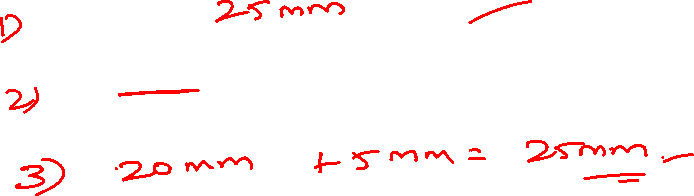 1) 25mm
2) —
3) 20mm +5mm = 25mm.